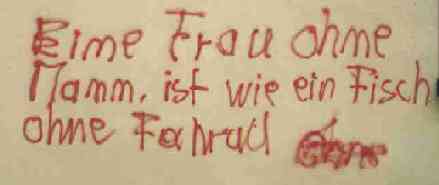 Eine Frau ohne
Mann, ist wie ein Fisch
ohne Fahrad